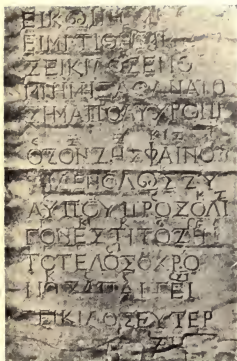 ΕΙΚΩΝΗΛΙ
ΕΙΜΙΤΙΘΗΣΙ
ΣΕΙΚΙΛΟΣΕΝΘ
ΜΝΗΜΗΣΑΘΑΝΑΤΟ
ΣΗΜΑΠΟΛΥΧΡΟΝΙ
ΟΣΟΝΖΗΣΦΑΙΝΟΥ
ΜΗΔΕΝΟΛΩΣΣΥ
ΛΥΠΟΥΠΡΟΣΟΛΙ
ΓΟΝΕΣΤΙΤΟΖΗΝ
ΤΟΤΕΛΟΣΟΧΡΟ
ΝΟΣΑΠΑΙΤΕΙ
ΣΕΙΚΙΛΟΣΕΥΤΕΡ
ΖΗ